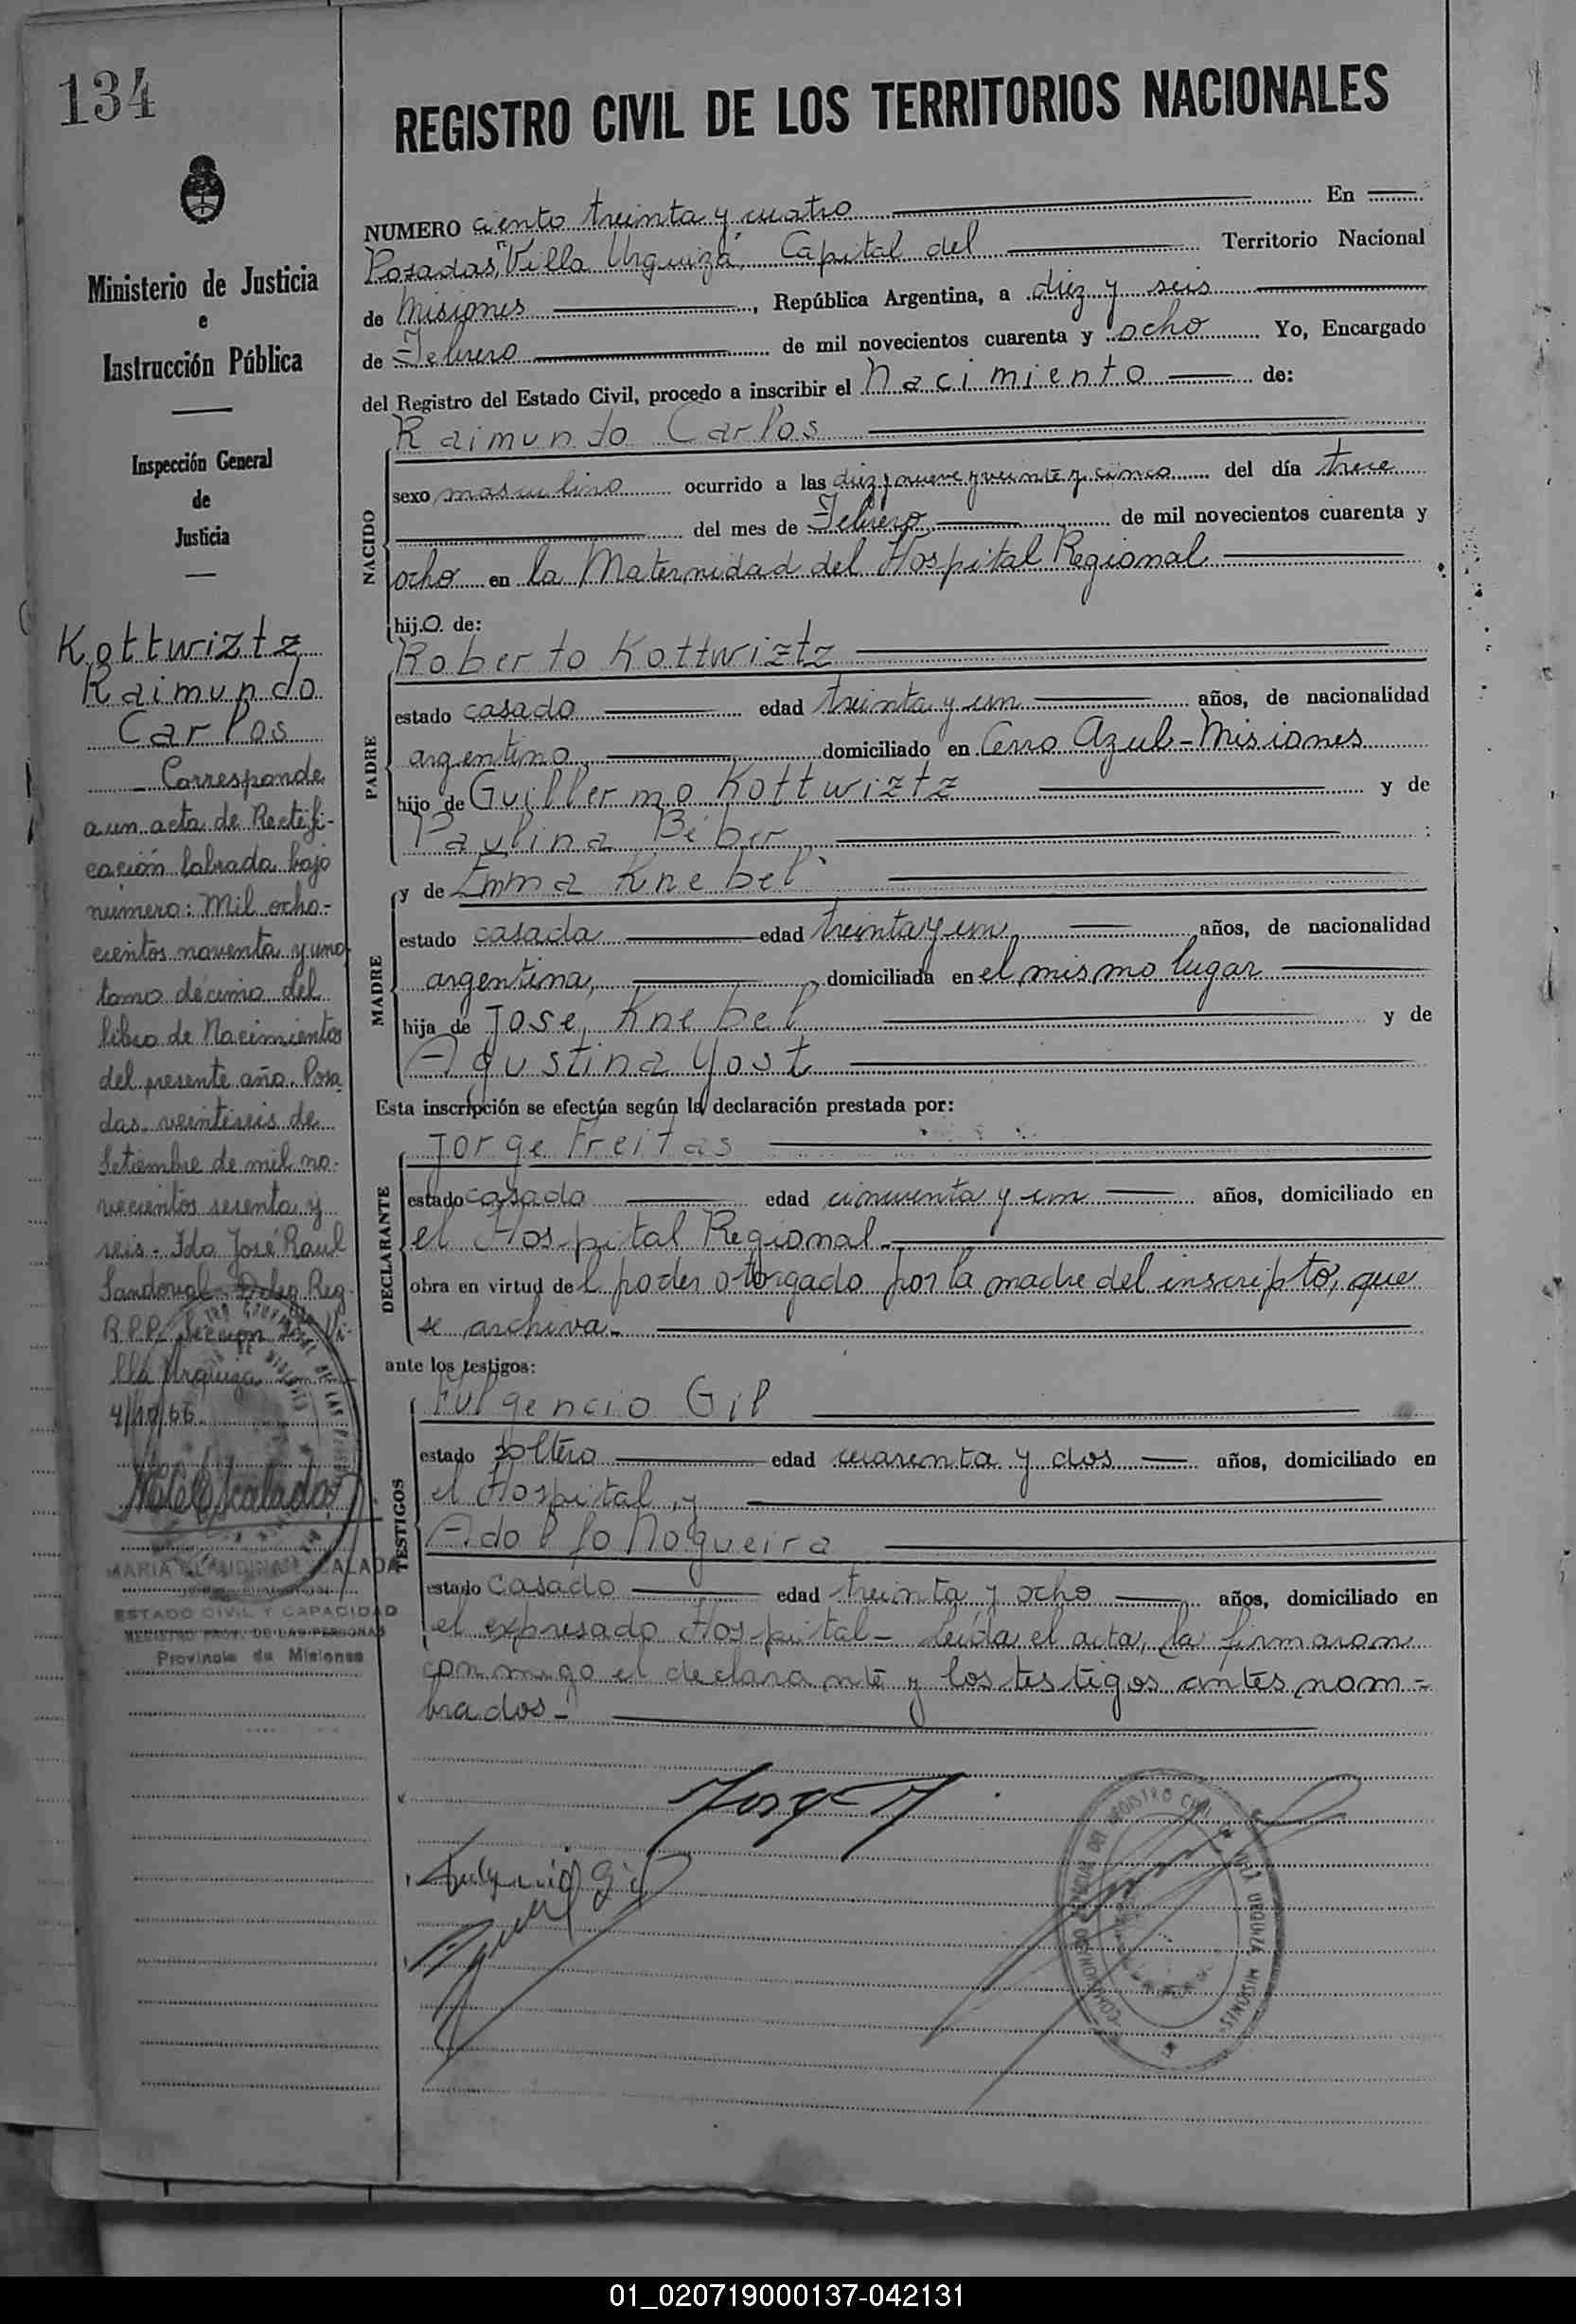 134
Ministerio de Justicia
e
Instrucción Pública
Inspección General
de
Justicia
Kottwiztz
Raimundo
Carlos
Corresponde
a un acta de Rectifi-
cación labrada bajo
número: Mil ocho-
cientos noventa y uno,
tomo décimo del
libro de Nacimientos
del presente año. Posa
das. veintiseis de
Setiembre de mil no-
vecientos sesenta y
seis. Fdo José Raul
Sandoval Deleg Reg.
R.P.P. Seccion Vi-
lla Urquiza
4/10/66
ESTADO CIVIL Y CAPACIDAD
REGISTRO PROV. DE LAS PERSONAS
Provincia de Misiones
REGISTRO CIVIL DE LOS TERRITORIOS NACIONALES
NUMERO ciento treinta y cuatro En
Posadas, "Villa Urquiza", Capital del Territorio Nacional
de Misiones, República Argentina, a diez y seis
de Febrero de mil novecientos cuarenta y ocho Yo, Encargado
del Registro del Estado Civil, procedo a inscribir el Nacimiento de:
NACIDO
Raimundo Carlos
sexo masculino ocurrido a las diez y nueve y veinte y cinco del día trece
del mes de Febrero de mil novecientos cuarenta y
ocho en la Maternidad del Hospital Regional
hij.o. de:
PADRE
Roberto Kottwiztz
estado casado edad treinta y un años, de nacionalidad
argentino domiciliado en Cerro Azul-Misiones
hijo de Guillermo Kottwiztz y de
Paulina Beber
MADRE
y de Emma Knebel
estado casada edad treinta y un años, de nacionalidad
argentina, domiciliada en el mismo lugar
hija de Jose Knebel y de
Agustina Yost
Esta inscripción se efectúa según la declaración prestada por:
DECLARANTE
Jorge Freitas
estado casado edad cincuenta y un años, domiciliado en
el Hospital Regional
obra en virtud del poder otorgado por la madre del inscripto, que
se archiva.
ante los testigos:
TESTIGOS
Fulgencio Gil
estado soltero edad cuarenta y dos años, domiciliado en
el Hospital, y
Adolfo Nogueira
estado casado edad treinta y ocho años, domiciliado en
el expresado Hospital - leída el acta, la firmaron
conmigo el declarante y los testigos antes nom=
brados-
Fulgencio Gil
01_020719000137-042131